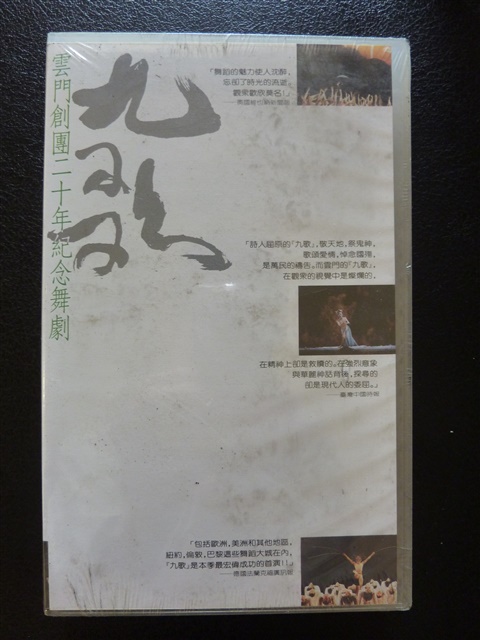 九歌
雲門創團二十年紀念舞劇
「舞蹈的魅力使人沈醉,
忘卻了時光的流逝。
觀眾歡欣莫名!」
「詩人屈原的『九歌』,敬天地,祭鬼神,
歌頌愛情,悼念國殤,
是萬民的禱告。而雲門的『九歌』,
在觀眾的視覺中是燦爛的,
在精神上卻是救贖的。在強烈意象
與華麗神話背後,探尋的
卻是現代人的委屈。」
——臺灣中國時報
「包括歐洲,美洲和其他地區,
紐約,倫敦,巴黎這些舞蹈大城在內,
『九歌』是本季最宏偉成功的首演!!」
——德國法蘭克福廣訊報